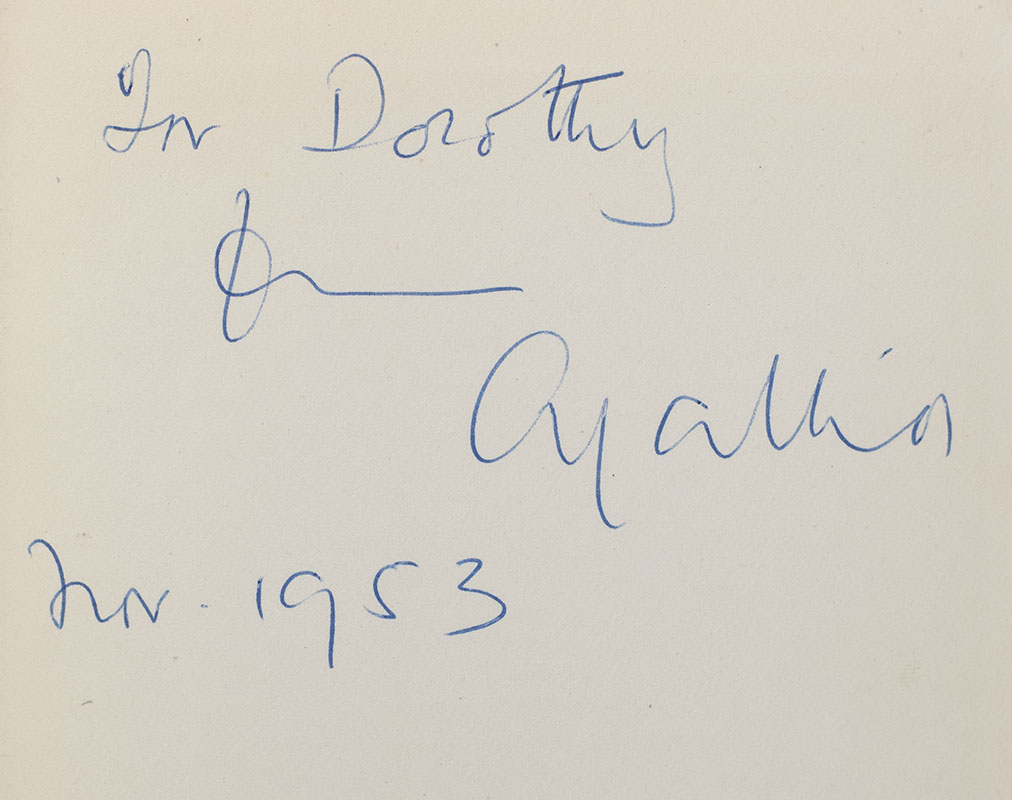 For Dorothy
from
Agatha
Nov. 1953